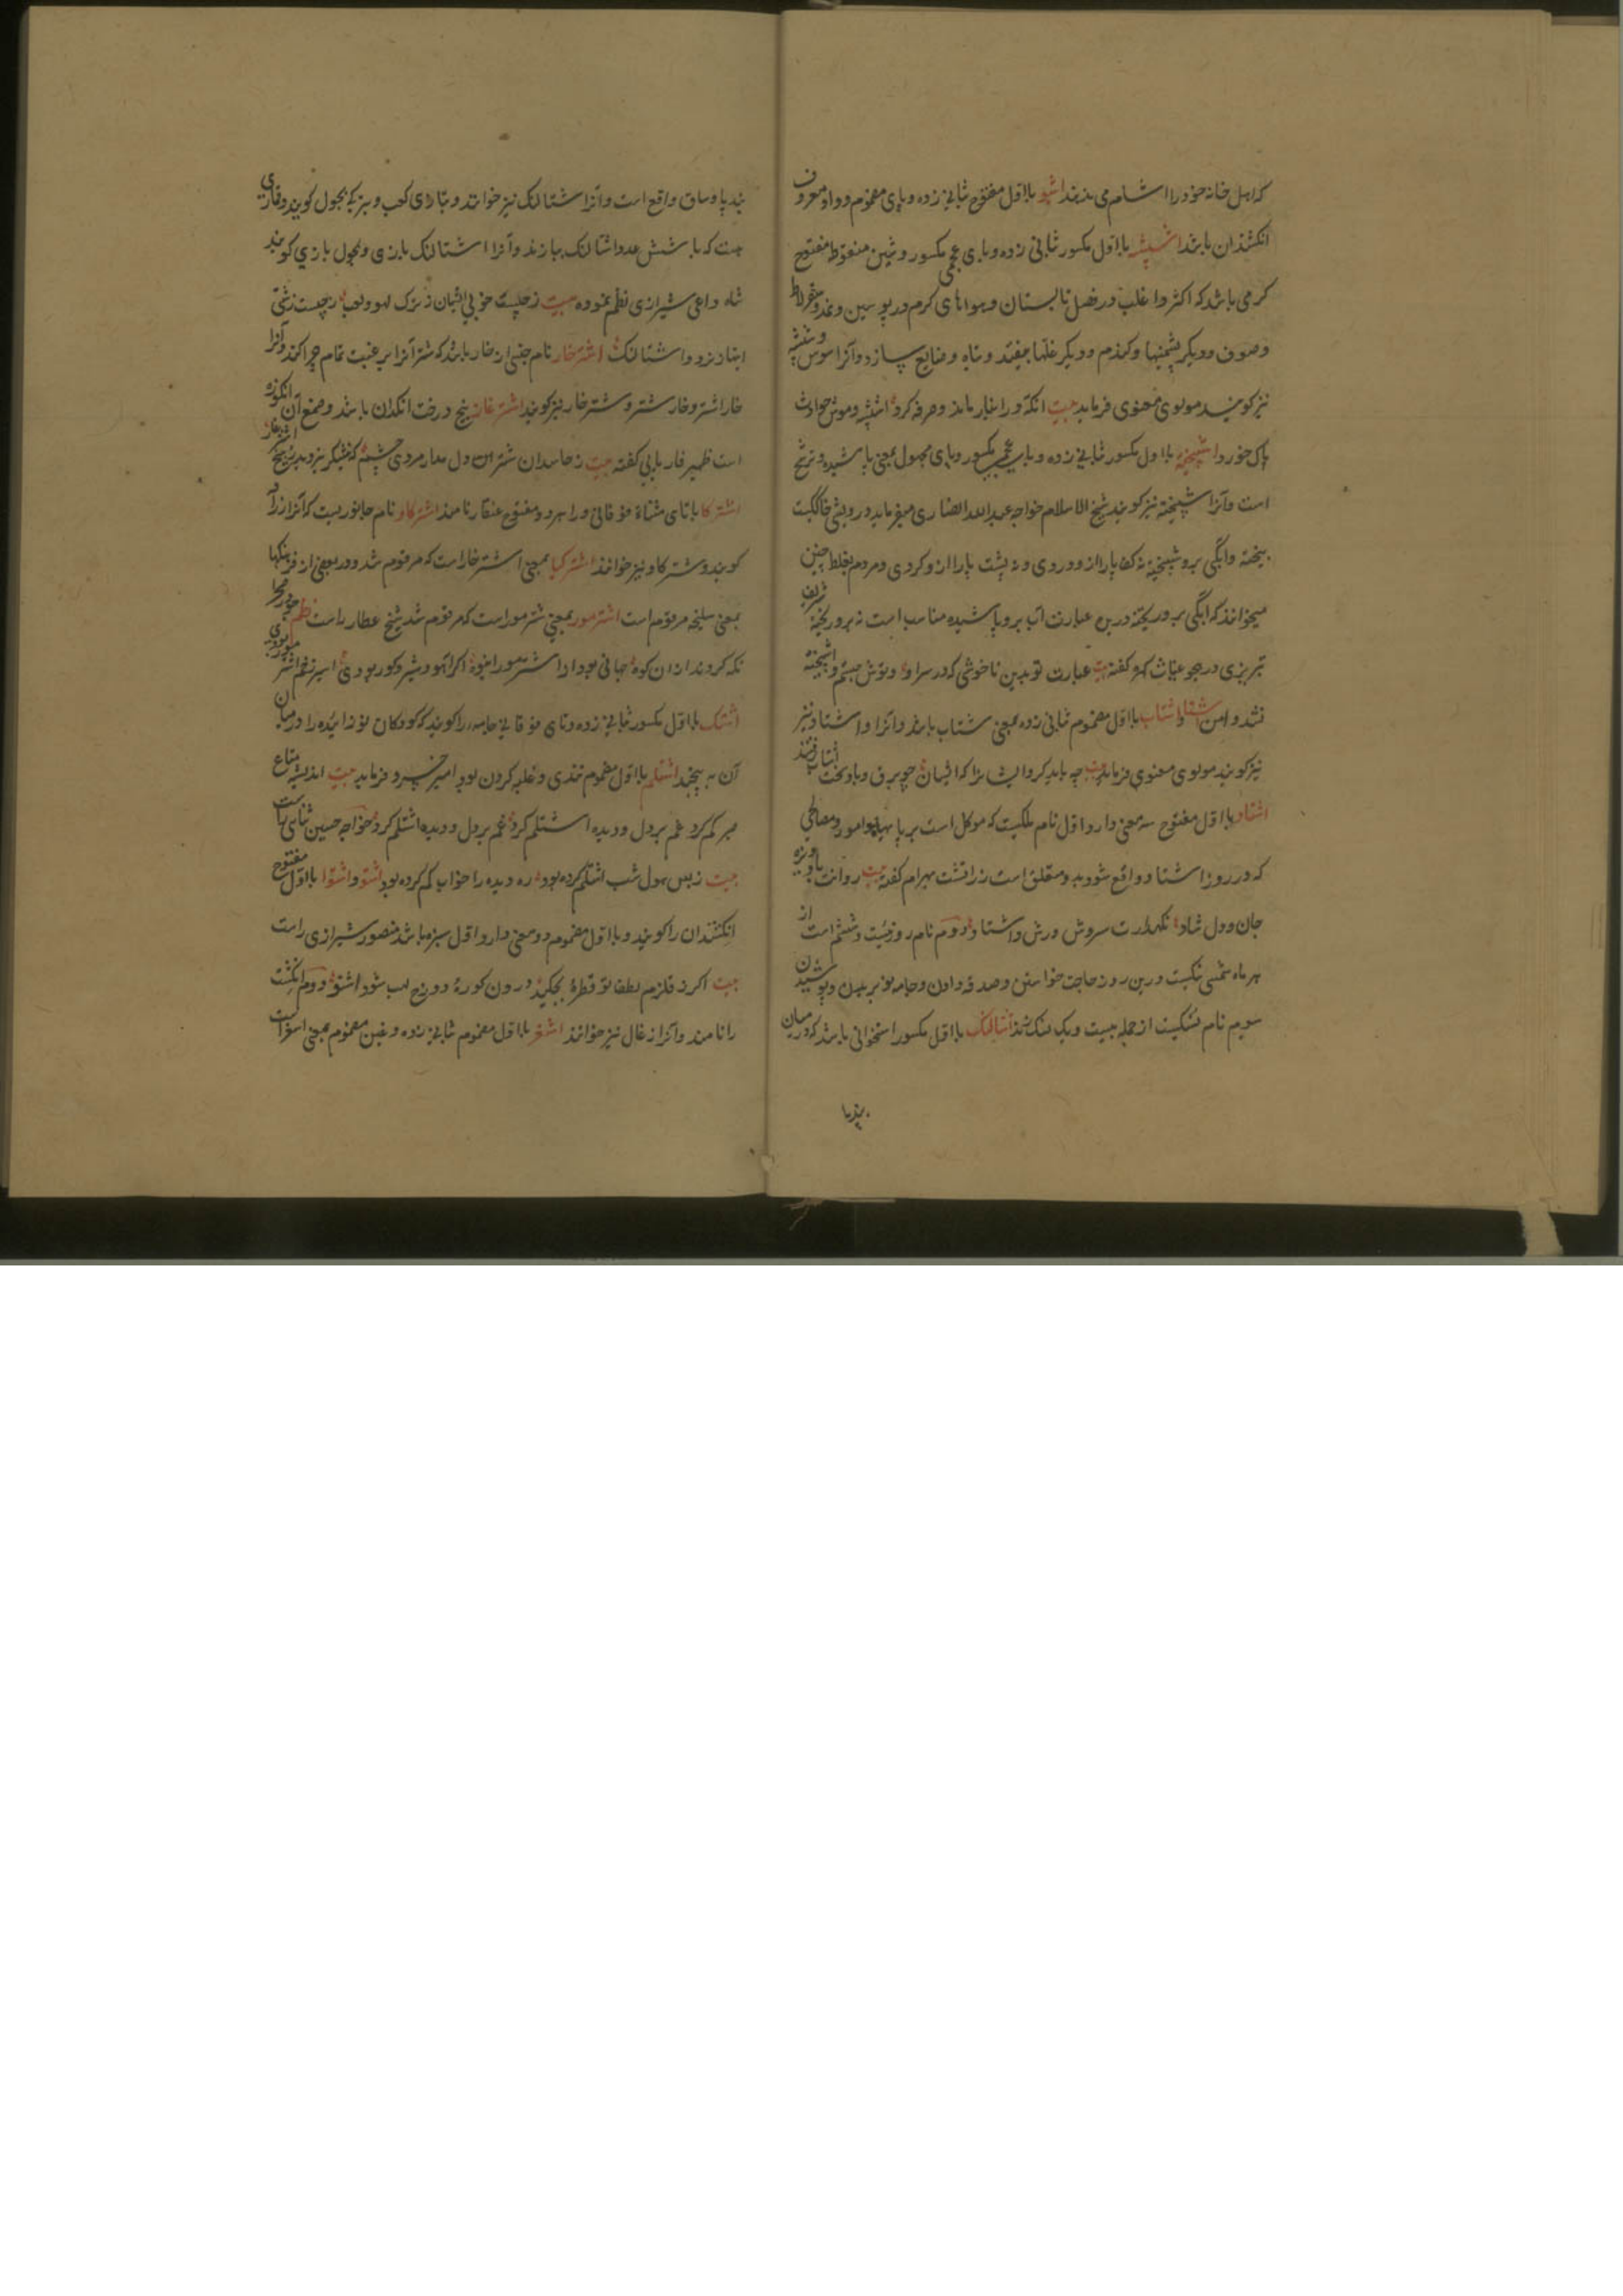 که اهل خانه خود را اشام می‌دند اشبو با اول مفتوح ثانی زده و بای مضموم و واو معروف
انکشتدان باشد اشپشه با اول مکسور ثانی زده و بای عجمی مکسور و شین منقوط مفتوح
کرمی باشد که اکثر و اغلب در فصل تابستان و هواهای کرم در پوستین و نمد و سقرلاط
و صوف و دیکر پشمینها و کندم و دیکر غلها بیفتد و تباه و ضایع سازد و آنرا سوس و شپشه
نیز کویند مولوی معنوی فرماید بیت انکه در انبار ماند و صرفه کرد اشپشه و موش حوادث
پاک خورد اشپیخته با اول مکسور ثانی زده و بای عجمی مکسور و یای مجهول بمعنی پاشیده و ترشح
است و آنرا شپیخته نیز کویند شیخ الاسلام خواجه عبدالله انصاری میفرماید درویشی خاکیست
بیخته و آبکی برو شپیخته نه کف پا را از و دردی و نه پشت پا را از و کردی و مردم بغلط چنین
میخوانند که آبکی برو ریخته درین عبارت آب برو پاشیده مناسب است نه برو ریخته شریف
تبریزی در هجو غیاث کره کفته بیت عبارت تو بدین ناخوشی که در سر او و توش جستم و اشپیخته
نشد دامن اشتا و اشتاب با اول مضموم ثانی زده بمعنی شتاب باشد و آنرا و اشتاو نیز
نیز کویند مولوی معنوی فرماید بیت چه باید کرد ایشانرا که ایشان چو برق و باد سخت اشتاب رفتند
اشتاد با اول مفتوح سه معنی دارد اول نام ملکیست که موکل است بر یا بها و امور و مصالحی
که در روز اشتاد واقع شود بدو متعلق است زراتشت بهرام کفته بیت روانت باد ویژه
جان و دل شاد نکهدارت سروش و رش و اشتاد دوم نام روز بیست و ششم است از
هر ماه شمسی نیکست درین روز حاجت خواستن و صدقه دادن و جامه نو بریدن و پوشیدن
سویم نام نسکیست از جمله بیست و یک نسک زند اشتالنک با اول مکسور استخوانی باشد که در میان
بند پا
بند پا و ساق واقع است و آنرا شتالنک نیز خوانند و بتازی کعب و به ترکی بجول کویند و قماری
هست که با شش عدد اشتالنک ببازند و آنرا اشتالنک بازی و بجول بازی کویند
شاه داعی شیرازی نظم نموده بیت زچیست خوبی ایشان ز ترک لهو و لعب ز چیست زشتی
اینها ز نرد و اشتالنک اشترخار نام جنسی از خار باشد که شتر آنرا برغبت تمام چرا کند و آنرا
خار اشتر و خار شتر و شتر خار نیز کویند اشترغاز بیخ درخت انکدان باشد و صمغ آن انکوزه
است ظهیر فاریابی کفته بیت ز حاسدان شتر دل مدار مردی چشم که نیشکر نبرد بدید ز بیخ اشترغاز
اشترکا با تای مثناة فوقانی و را هر دو مفتوح عنقا را نامند اشترکاو نام جانوریست که آنرا زراف
کویند و شترکاو نیز خوانند اشترکیا بمعنی اشترخار است که مرقوم شد و در بعضی از فرهنکها
بمعنی سلیخه مرقوم است اشترمور بمعنی شترمور است که مرقوم شد شیخ عطار راست نظم
نکه کردند از ان کوه جهانی بود از اشترمور انبوه اگر آهو و شیر و کور بودی اسیر زخم اشتر موربودی
اشتک با اول مکسور ثانی زده و تای فوقانی جامه را کویند که کودکان نو زائیده را در میان
آن به پیچند اشتلم با اول مضموم تندی و غلبه کردن بود امیر خسرو فرماید بیت اندیشه متاع
صبر کم کرد غم بر دل و دیده اشتلم کرد غم بر دل و دیده اشتلم کرد خواجه حسین ثنائی راست
بیت ز بس هول شب اشتلم کرده بود ره دیده را خواب کم کرده بود اشتو و اشتوا با اول مفتوح
انکشتدان را کویند و با اول مضموم دو معنی دارد اول سبزه باشد منصور شیرازی راست
بیت اکر ز قلزم لطف تو قطرهٔ بچکید درون کورهٔ دوزخ لهب شود اشتو دوم انکشت
را نامند و آنرا زغال نیز خوانند اشغر با اول مضموم ثانی زده و غین مضموم بمعنی اسغر است